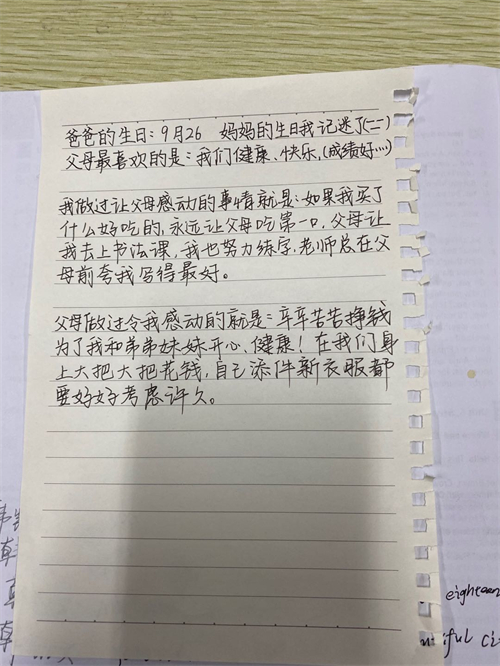 爸爸的生日:9月26 妈妈的生日我记迷了(二二)
父母最喜欢的是:我们健康、快乐,(成绩好…)
我做过让父母感动的事情就是:如果我买了
什么好吃的,永远让父母吃第一口,父母让
我去上书法课,我也努力练字,老师总在父
母前夸我写得最好。
父母做过令我感动的就是:辛辛苦苦挣钱
为了我和弟弟妹妹开心、健康!在我们身
上大把大把花钱,自己添件新衣服都
要好好考虑许久。
eighteen